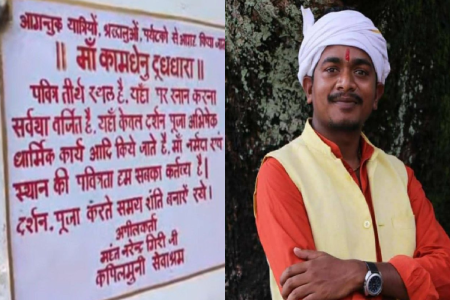 आगन्तुक यात्रियों, श्रध्दालुओं, पर्यटकों से आग्रह किया जाता
॥ माँ कामधेनु दूधधारा ॥
पवित्र तीर्थ स्थल है, यहाँ पर स्नान करना
सर्वथा वर्जित है, यहाँ केवल दर्शन पूजा अभिषेक
धार्मिक कार्य आदि किये जाते है, माँ नर्मदा एवं
स्थान की पवित्रता हम सबका कर्तव्य है।
दर्शन, पूजा करते समय शांति बनायें रखे।
अपीलकर्ता
महंत नरेन्द्र गिरी जी
कपिलमुनी सेवाश्रम